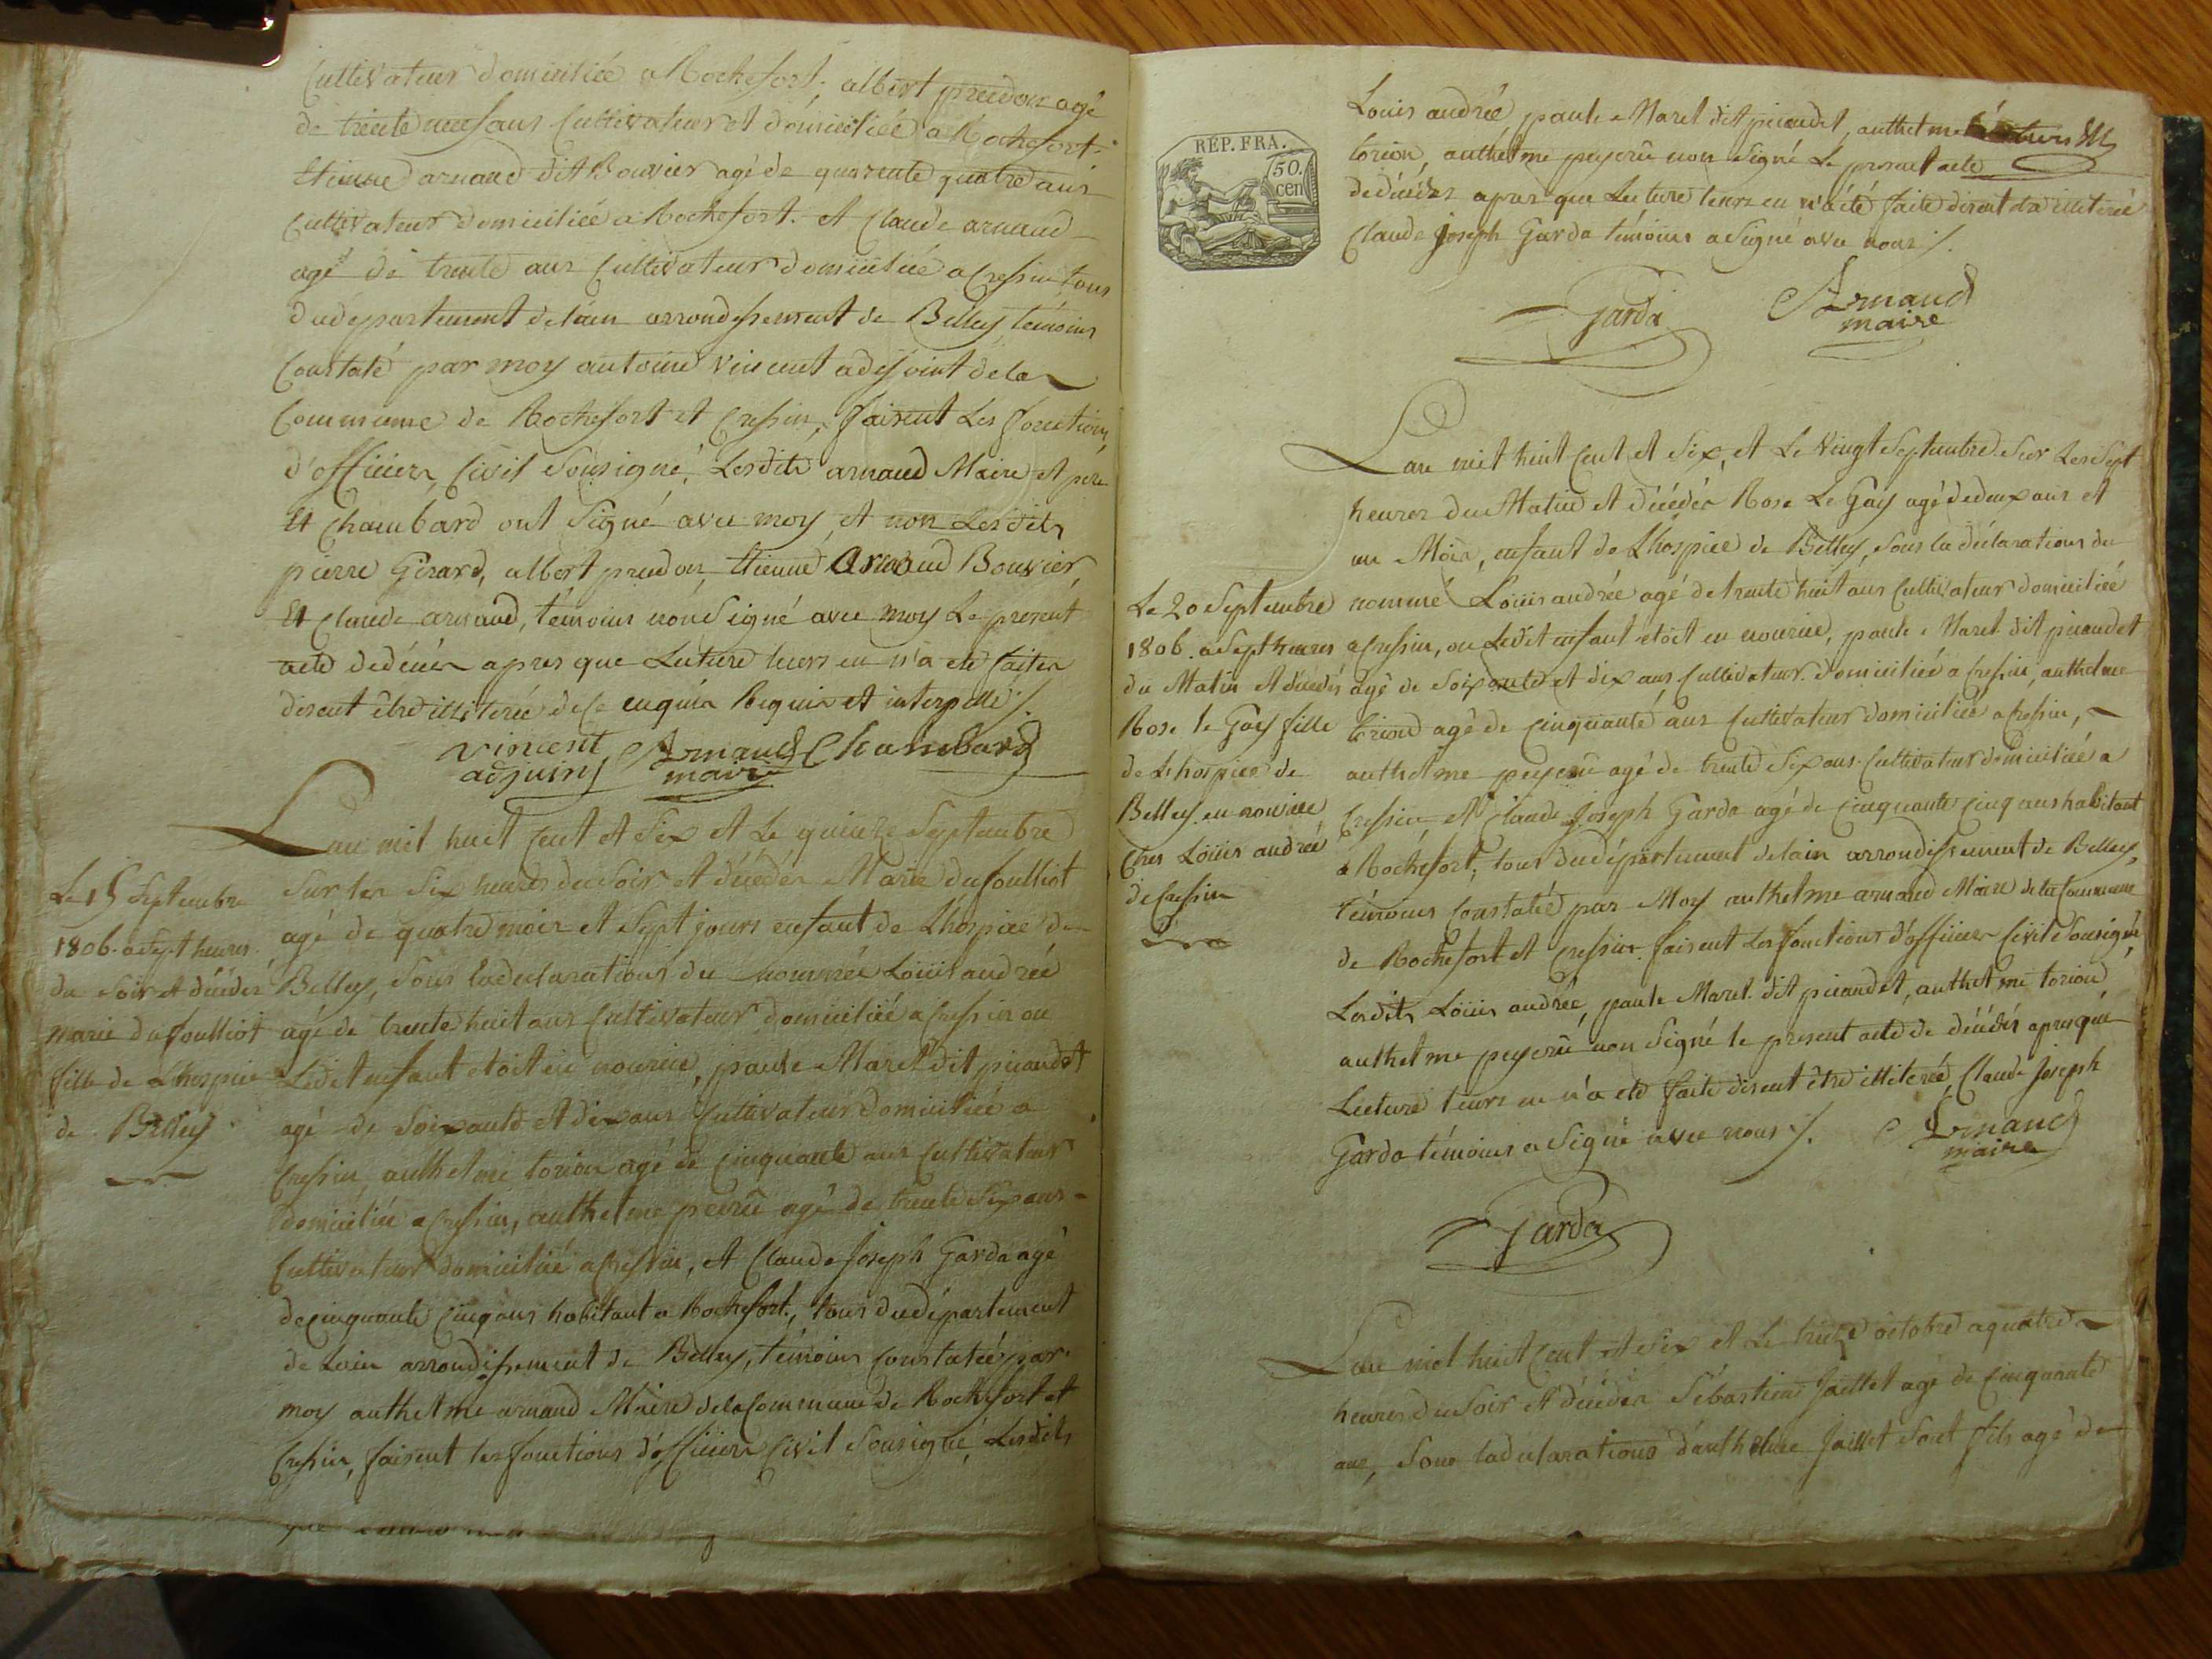 Cultivateur domiciliée a Rochefort; albert prudon agé
de trente neuf ans Cultivateur et domiciliée a Rochefort;
Etienne arnaud dit Bouvier agé de quarente quatre ans
Cultivateur domiciliée a Rochefort. et Claude arnaud
agé de trente ans Cultivateur domiciliée a Cressin tous
du departement de lain arrondissement de Belley, témoins
Constaté par moy antoine vincent adjoint de la
Commune de Rochefort et Cressin, faisent Les fonctions
d'officier, Civil Sousigné, Lesdits arnaud Maire et pere
Et Chambard ont Signé avec moy, et non Lesdits
pierre Girard, albert prudon, Etienne Arnaud Bouvier,
Et Claude arnaud, témoins non Signé avec moy Le present
acte de décés apres que Lecture leurs en n'a eté faites
disent être illiterée de ce enquis Requis et interpellé ./.
vincent adjoint Arnaud maire Chambard
Lan mil huit Cent et Six et Le quinze Septembre
Sur les Six heures du Soir et décédés Marie dufoulliot
agé de quatre mois et Sept jours enfant de Lhospice de
Belley, Sous la déclarations du nommée Loüis andrée
agé de trente huit ans Cultivateur domiciliée a Cressin ou
Ledit enfant etoit en nourice, paule Maret dit picandet
agé de Soixante et dix ans Cultivateur domiciliée a
Cressin, anthelme torion agé de Cinquante ans Cultivateur
domiciliée a Cressin, anthelme peÿsrû agé de trente Six ans
Cultivateur domiciliée a Cressin, et Claude Joseph Garda agé
de Cinquante Cinq ans habitant a Rochefort., tous du département
de Lain arrondissement de Belley, témoins Constatée par
moy anthelme arnaud Maire de la Commune de Rochefort et
Cressin, faisent les fonctions d'officier Civil Sousigné, Lesdits
Le 15 Septembre
1806. a Sept heures
du Soir et décédés
marie dufoulliot
fille de Lhospice
de Belley
RÉP. FRA.
50.
cen
Louis andrée, paule Maret dit picandet, anthelme
torion, anthelme peyserû non Signé Le present acte
de décédés apres que Lecture leurs en n'a été faite disent etre illiterée
Claude Joseph Garda témoins a Signé avec nous ./.
Garda Arnaud
maire
Lan mil huit Cent et Six, et Le Vingt Septembre Sur Les Sept
heures du Matin et décédés Rose Le Gay agé de deux ans et
un Mois, enfant de Lhospice de Belley, Sous la déclarations du
nommé Loüis andrée agé de trente huit ans Cultivateur domiciliée
a Cressin, ou Ledit enfant etoit en nourice, paule Maret dit picandet
agé de Soixante et dix ans Cultivateur domiciliée a Cressin, anthelme
torion agé de Cinquante ans Cultivateur domiciliée a Cressin,
anthelme peyserû agé de trente Six ans Cultivateur domiciliée a
Cressin et Claude Joseph Garda agé de Cinquante Cinq ans habitant
a Rochefort, tous du département de lain arrondissement de Belley,
témoins Constatée par Moy anthelme arnaud Maire de la Commune
de Rochefort et Cressin. faisent Les fonctions d'officier Civil Sousigné,
Lesdits Loüis andrée, paule Maret dit picandet, anthelme torion,
anthelme peyserû non Signé le present acte de décédés apres que
Lecture leurs en n'a eté faite disent être illiterée, Claude Joseph
Garda témoins a Signé avec nous ./. Arnaud
maire
Garda
Le 20 Septembre
1806. a Sept heures
du Matin et décédés
Rose le Gay fille
de Lhospice de
Belley. en nourice
Ches Loüis andrée
de Cressin
Lan mil huit Cent et Six et Le treize octobre a quatre
heures du Soir et décédés Sébastien Jaillet agé de Cinquante
ans, Sous la déclarations d'anthelme Jaillet Sont fils agé de